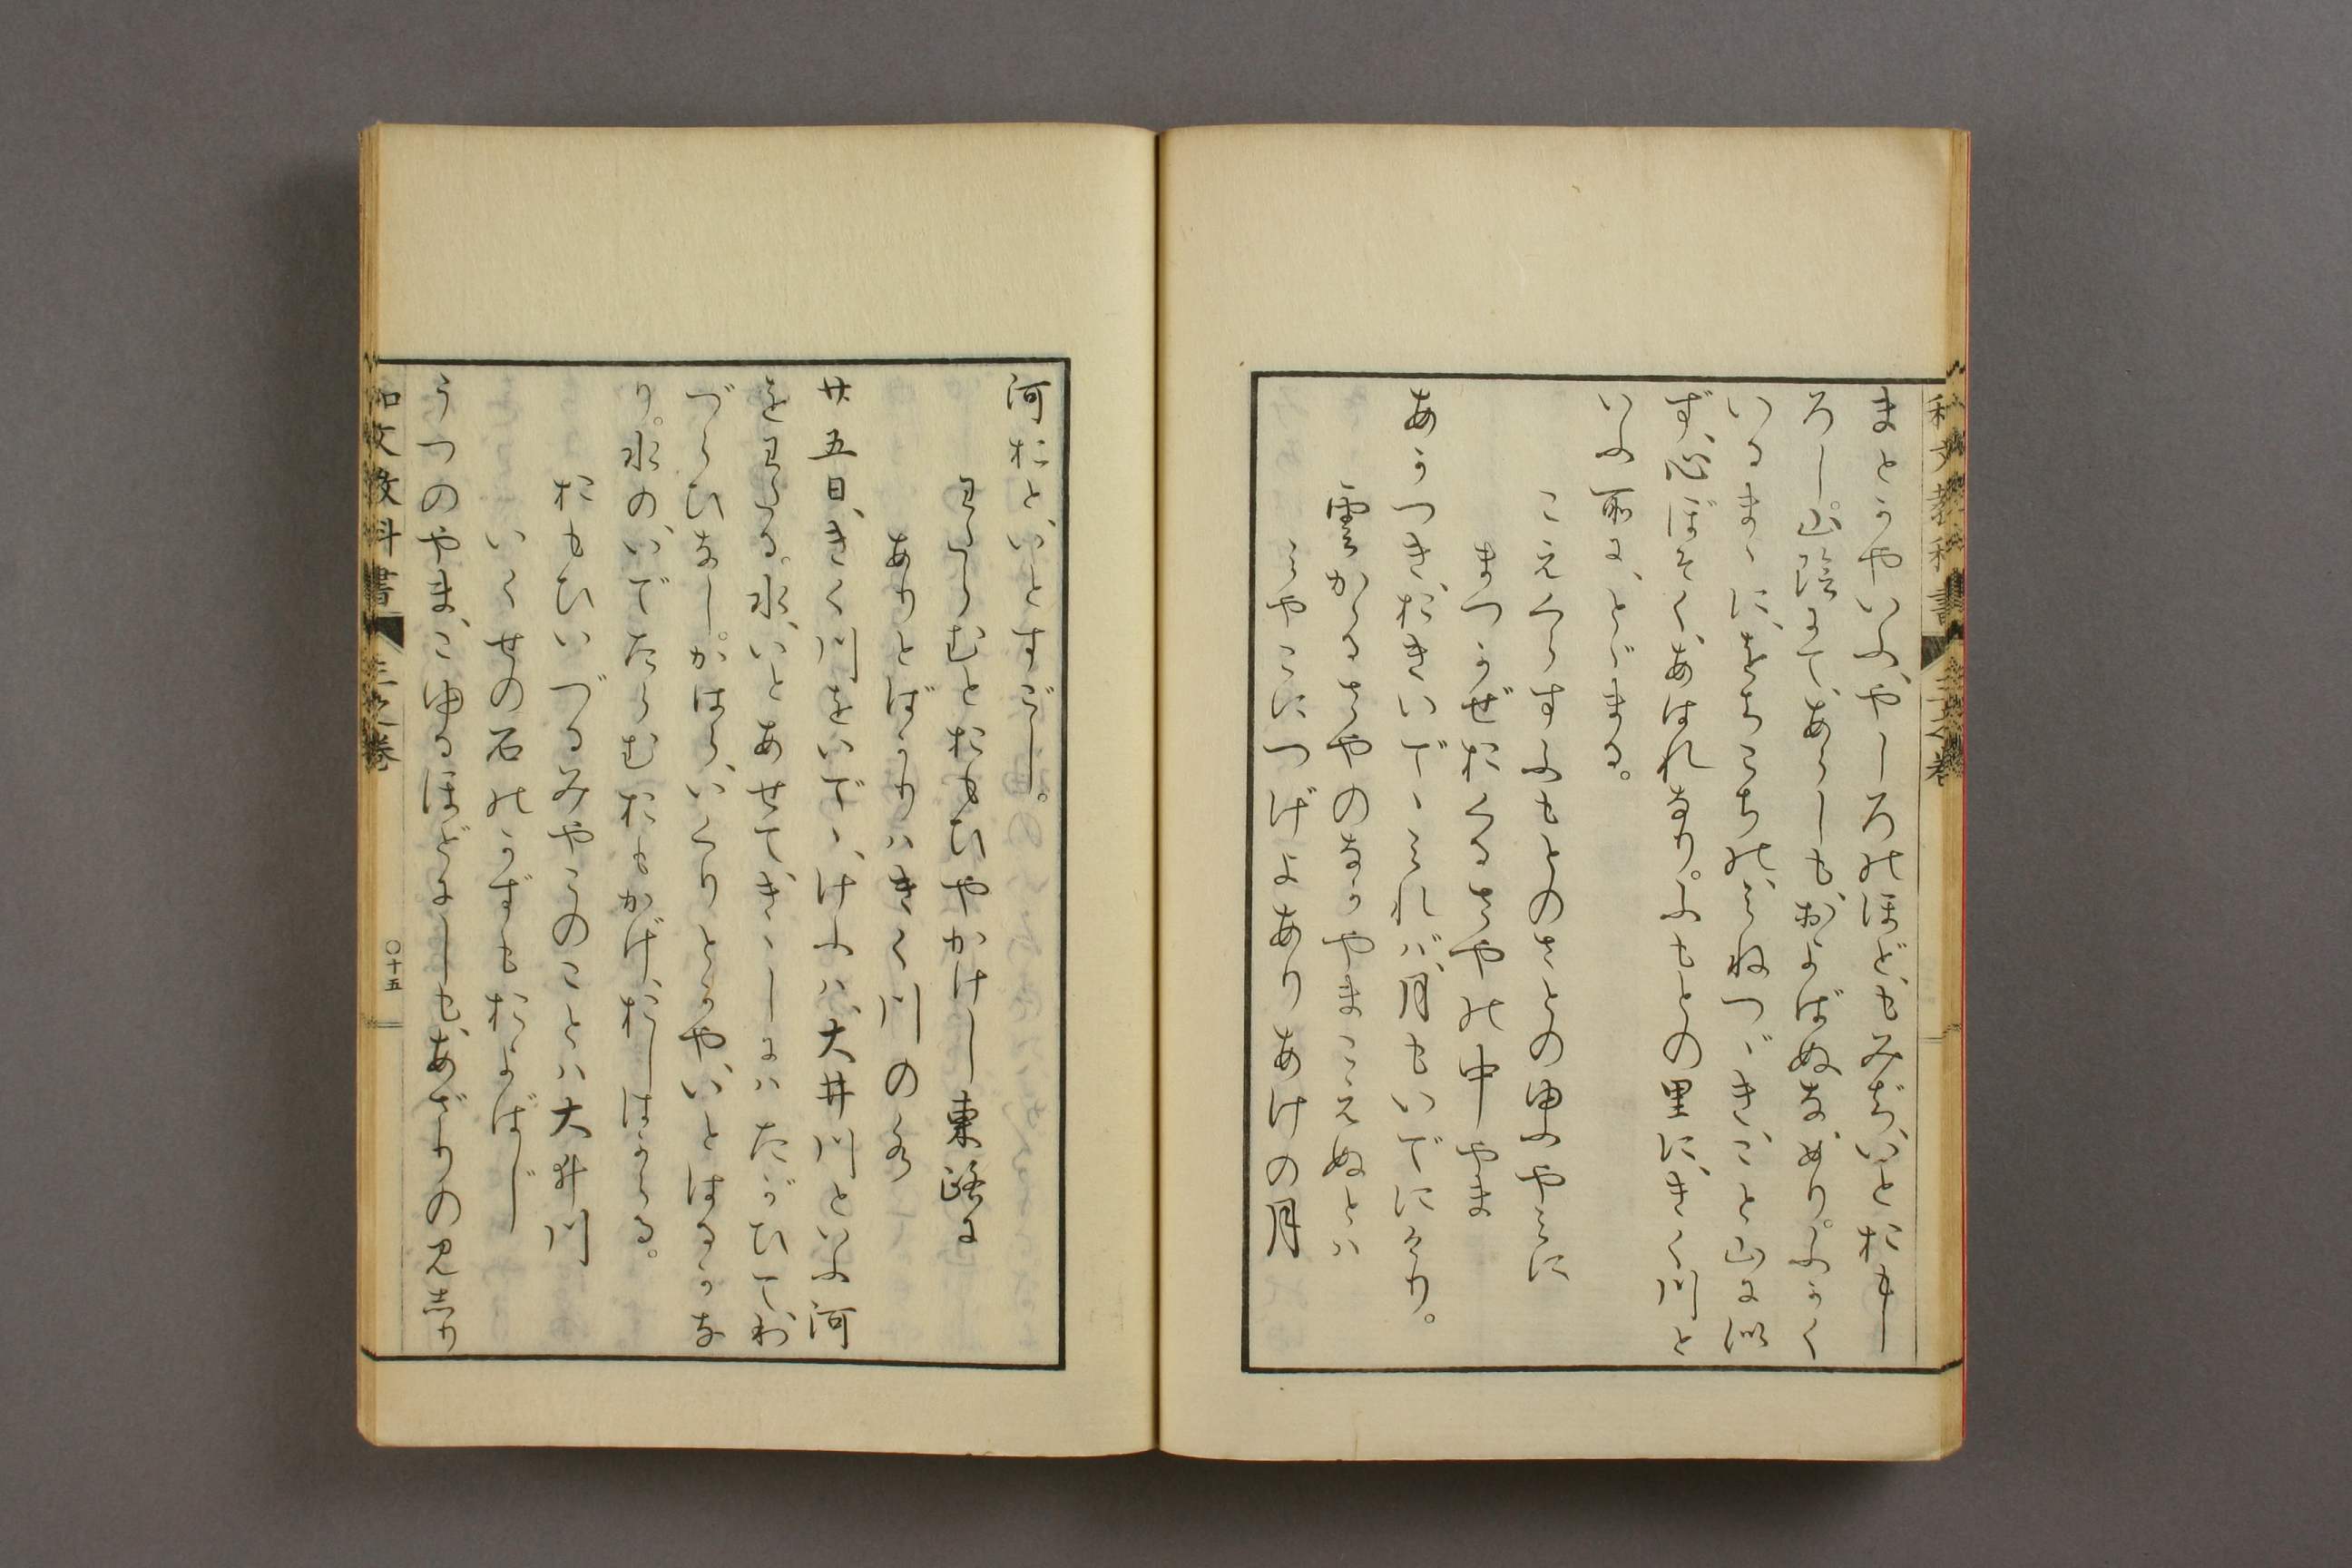 和文教科書 三之巻
まとかやいふ、やしろのほど、もみぢ、いとおもし
ろし。山陰にて、あらしも、およばぬなめり。ふかく
いるまゝに、をちこちの、みねつゞき、こと山に似
ず、心ぼそく、あはれなり。ふもとの里に、きく川と
いふ所に、とゞまる。
こえくらすふもとのさとのゆふやみに
まつかぜおくるさやの中やま
あかつき、おきいでゝみれバ、月もいでにけり。
雲かゝるさやのなかやまこえぬとハ
みやこにつげよありあけの月
河おと、いとすごし。
わたらむとおもひやかけし東路に
ありとばかりハきく川の水
廿五日、きく川をいでゝ、けふハ、大井川といふ河
をわたる。水、いとあせて、きゝしにハたがひて、わ
づらひなし。かはら、いくりとかや、いとはるかな
り。水の、いでたらむおもかげ、おしはからる。
おもひいづるみやこのことハ大井川
いくせの石のかずもおよばじ
うつのやま、こゆるほどにしも、あざりの見志り
和文教科書 三之巻 〇十五